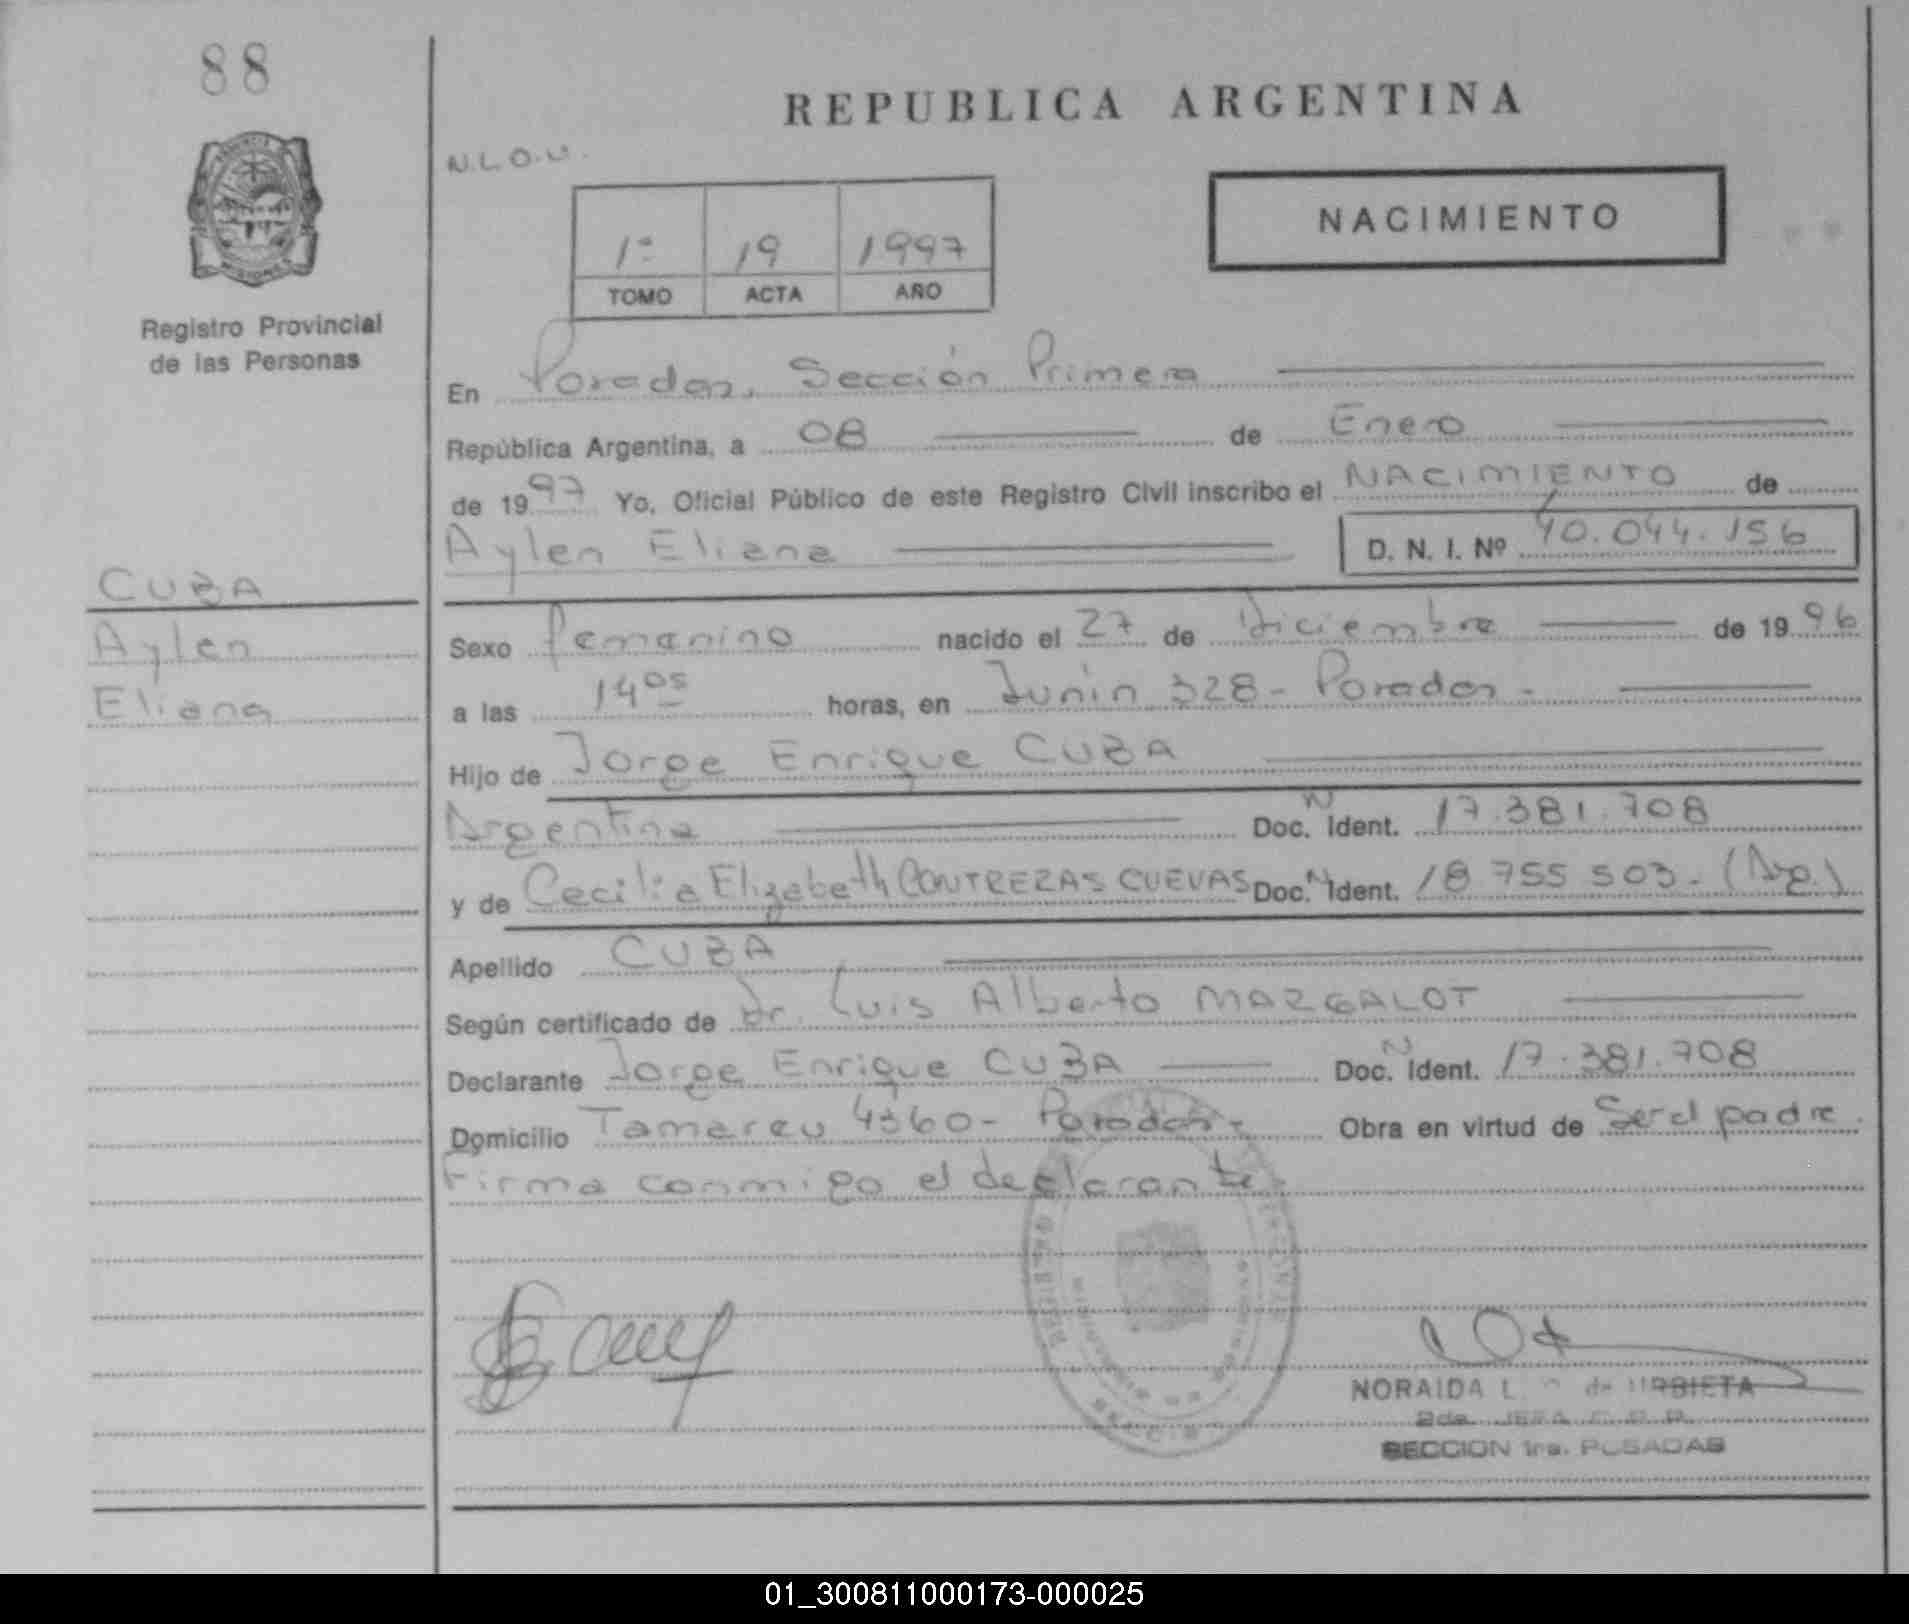 88
REPUBLICA ARGENTINA
N.L.O.U.
NACIMIENTO
1º 19 1997
TOMO ACTA AÑO
Registro Provincial
de las Personas
En Posadas, Sección Primera
República Argentina, a 08 de Enero
de 1997 Yo, Oficial Público de este Registro Civil inscribo el NACIMIENTO de
Aylen Eliana D. N. I. Nº 40.044.156
CUBA
Aylen
Eliana
Sexo femenino nacido el 27 de Diciembre de 1996
a las 14 05 horas, en Junín 328 - Posadas -
Hijo de Jorge Enrique CUBA
Argentina Doc. N Ident. 17.381.708
y de Cecilia Elizabeth CONTRERAS CUEVAS Doc. N Ident. 18 755 503 - (Arg.)
Apellido CUBA
Según certificado de Dr. Luis Alberto MARGALOT
Declarante Jorge Enrique CUBA Doc. N Ident. 17.381.708
Domicilio Tamareu 4360 - Posadas - Obra en virtud de Ser el padre.
Firma conmigo el declarante
NORAIDA L. de URBIETA
2da. JEFA
SECCION 1ra. POSADAS
01_300811000173-000025